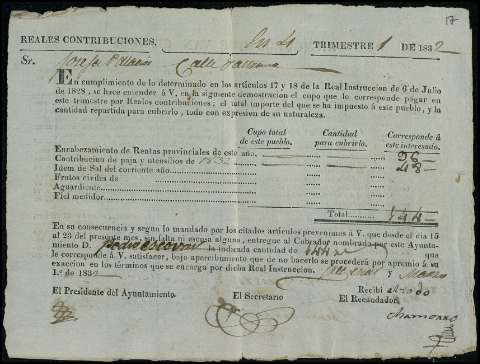 17
REALES CONTRIBUCIONES.
TRIMESTRE 1 DE 1832
Sr. Josefa Calle
En cumplimiento de lo determinado en los artículos 17 y 18 de la Real Instruccion de 6 de Julio
de 1828, se hace entender á V. en la siguiente demostracion el cupo que le corresponde pagar en
este trimestre por Reales contribuciones; el total importe del que se ha impuesto á este pueblo, y la
cantidad repartida para cubrirlo, todo con expresion de su naturaleza.
Cupo total de este pueblo. Cantidad para cubrirlo. Corresponde á este interesado.
Encabezamiento de Rentas provinciales de este año. 96
Contribucion de paja y utensilios de 1832 48
Idem de Sal del corriente año.
Frutos civiles de
Aguardiente.
Fiel medidor.
Total 144
En su consecuencia y segun lo mandado por los citados artículos prevenimos á V. que desde el dia 15
al 25 del presente mes, sin falta ni escusa alguna, entregue al Cobrador nombrado por este Ayunta-
miento D. Pedro la indicada cantidad de 144 que
le corresponde á V. satisfacer, bajo apercibimiento que de no hacerlo se procederá por apremio á su
exaccion en los términos que se encarga por dicha Real Instruccion. y Marzo
1.º de 1832
El Presidente del Ayuntamiento. El Secretario Recibi
El Recaudador.
Chamorro